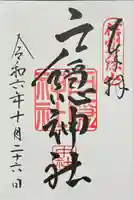 奉拝
戸隠神社
令和六年十月二十六日